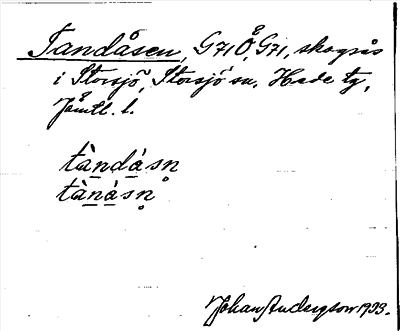 Tandåsen, G71Ö, G71, skogsås
i Storsjö, Storsjö sn. Hede tg,
Jämtl. l.
tàndásn̥
tàn̠ásn̥
Johan Anderzson 1933.